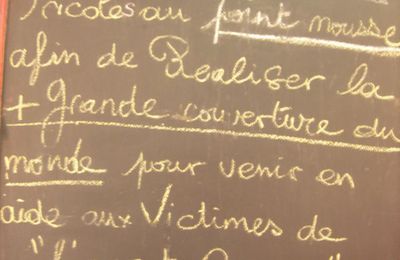 Tricotés au point mousse
afin de Realiser la
+ grande couverture du
monde pour venir en
aide aux Victimes de